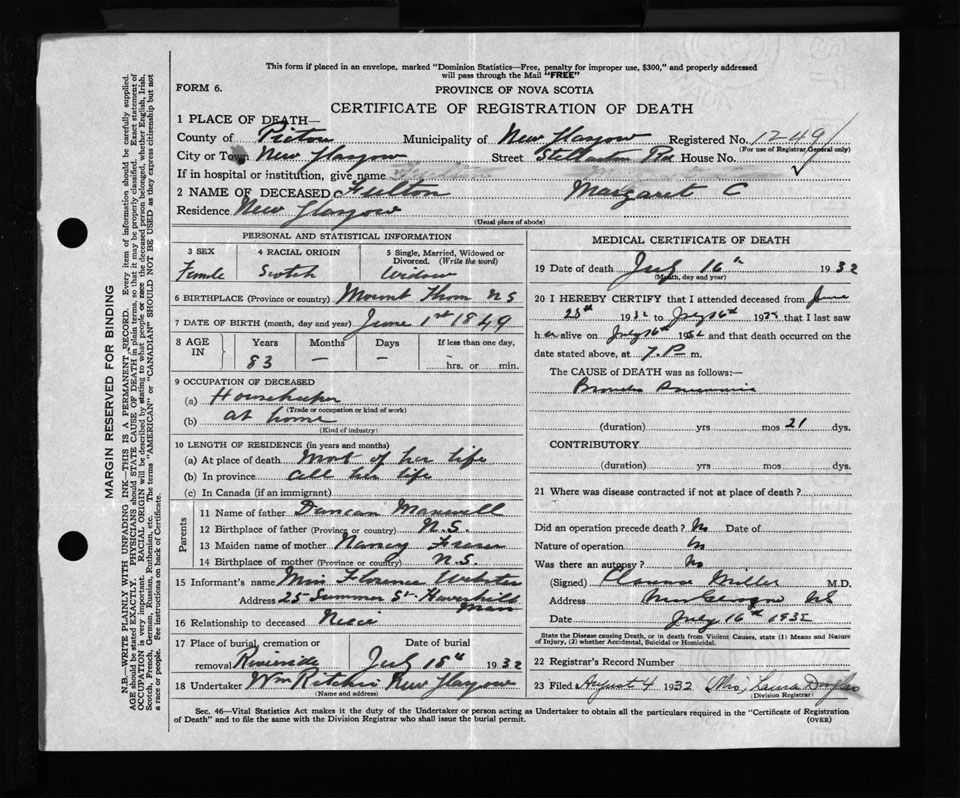 This form if placed in an envelope, marked "Dominion Statistics—Free, penalty for improper use, $300," and properly addressed
will pass through the Mail "FREE"
FORM 6.
PROVINCE OF NOVA SCOTIA
CERTIFICATE OF REGISTRATION OF DEATH
1 PLACE OF DEATH—
County of Pictou Municipality of New Glasgow Registered No. 1249
(For use of Registrar General only)
City or Town New Glasgow Street Stellarton Rd House No.
If in hospital or institution, give name
2 NAME OF DECEASED Fulton Margaret C
Residence New Glasgow
(Usual place of abode)
PERSONAL AND STATISTICAL INFORMATION
3 SEX 4 RACIAL ORIGIN 5 Single, Married, Widowed or
Divorced. (Write the word)
Femle Scotch Widow
6 BIRTHPLACE (Province or country) Mount Thom N S
7 DATE OF BIRTH (month, day and year) June 1st 1849
8 AGE IN Years Months Days If less than one day,
83 — — hrs. or min.
9 OCCUPATION OF DECEASED
(a) Housekeeper
(Trade or occupation or kind of work)
(b) at home
(Kind of industry)
10 LENGTH OF RESIDENCE (in years and months)
(a) At place of death Most of her life
(b) In province all her life
(c) In Canada (if an immigrant)
Parents
11 Name of father Duncan Maxwell
12 Birthplace of father (Province or country) N.S.
13 Maiden name of mother Nancy Fraser
14 Birthplace of mother (Province or country) N.S.
15 Informant's name Miss Florence Webster
Address 25 Summer St Haverhill
Mass
16 Relationship to deceased Niece
17 Place of burial, cremation or Date of burial
removal Riverside July 18th 1932
18 Undertaker Wm Ritchie New Glasgow
(Name and address)
MEDICAL CERTIFICATE OF DEATH
19 Date of death July 16th 1932
(Month, day and year)
20 I HEREBY CERTIFY that I attended deceased from June
25th 1932 to July 16th 1932 that I last saw
h er alive on July 16th 1932 and that death occurred on the
date stated above, at 7. P m.
The CAUSE of DEATH was as follows:—
Broncho Pneumonia
(duration) yrs mos 21 dys.
CONTRIBUTORY
(duration) yrs mos dys.
21 Where was disease contracted if not at place of death?
Did an operation precede death? No Date of
Nature of operation
Was there an autopsy? No
(Signed) Clarence Miller M.D.
Address New Glasgow NS
Date July 16th 1932
State the Disease causing Death, or in death from Violent Causes, state (1) Means and Nature
of Injury, (2) whether Accidental, Suicidal or Homicidal.
22 Registrar's Record Number
23 Filed August 4 1932 (Mrs) Laura Douglas
(Division Registrar)
Sec. 46—Vital Statistics Act makes it the duty of the Undertaker or person acting as Undertaker to obtain all the particulars required in the "Certificate of Registration
of Death" and to file the same with the Division Registrar who shall issue the burial permit. (OVER)
MARGIN RESERVED FOR BINDING
N.B.—WRITE PLAINLY WITH UNFADING INK—THIS IS A PERMANENT RECORD. Every item of information should be carefully supplied.
AGE should be stated EXACTLY. PHYSICIANS should STATE CAUSE OF DEATH in plain terms, so that it may be properly classified. Exact statement of
OCCUPATION is very important. RACIAL ORIGIN will be described by stating to what people or race the deceased person belonged, whether English, Irish,
Scotch, French, German, Russian, Ruthenian, etc. The terms "AMERICAN" or "CANADIAN" SHOULD NOT BE USED as they express citizenship but not
a race or people. See instructions on back of Certificate.